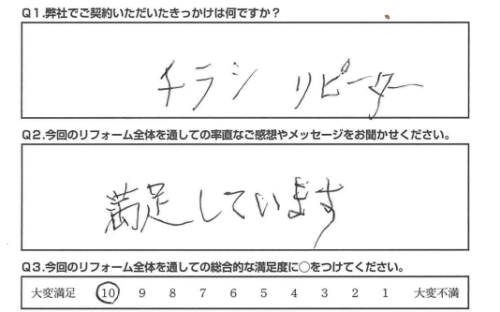 Q1.弊社でご契約いただいたきっかけは何ですか？
チラシ リピーター
Q2.今回のリフォーム全体を通しての率直なご感想やメッセージをお聞かせください。
満足しています
Q3.今回のリフォーム全体を通しての総合的な満足度に○をつけてください。
大変満足 10 9 8 7 6 5 4 3 2 1 大変不満